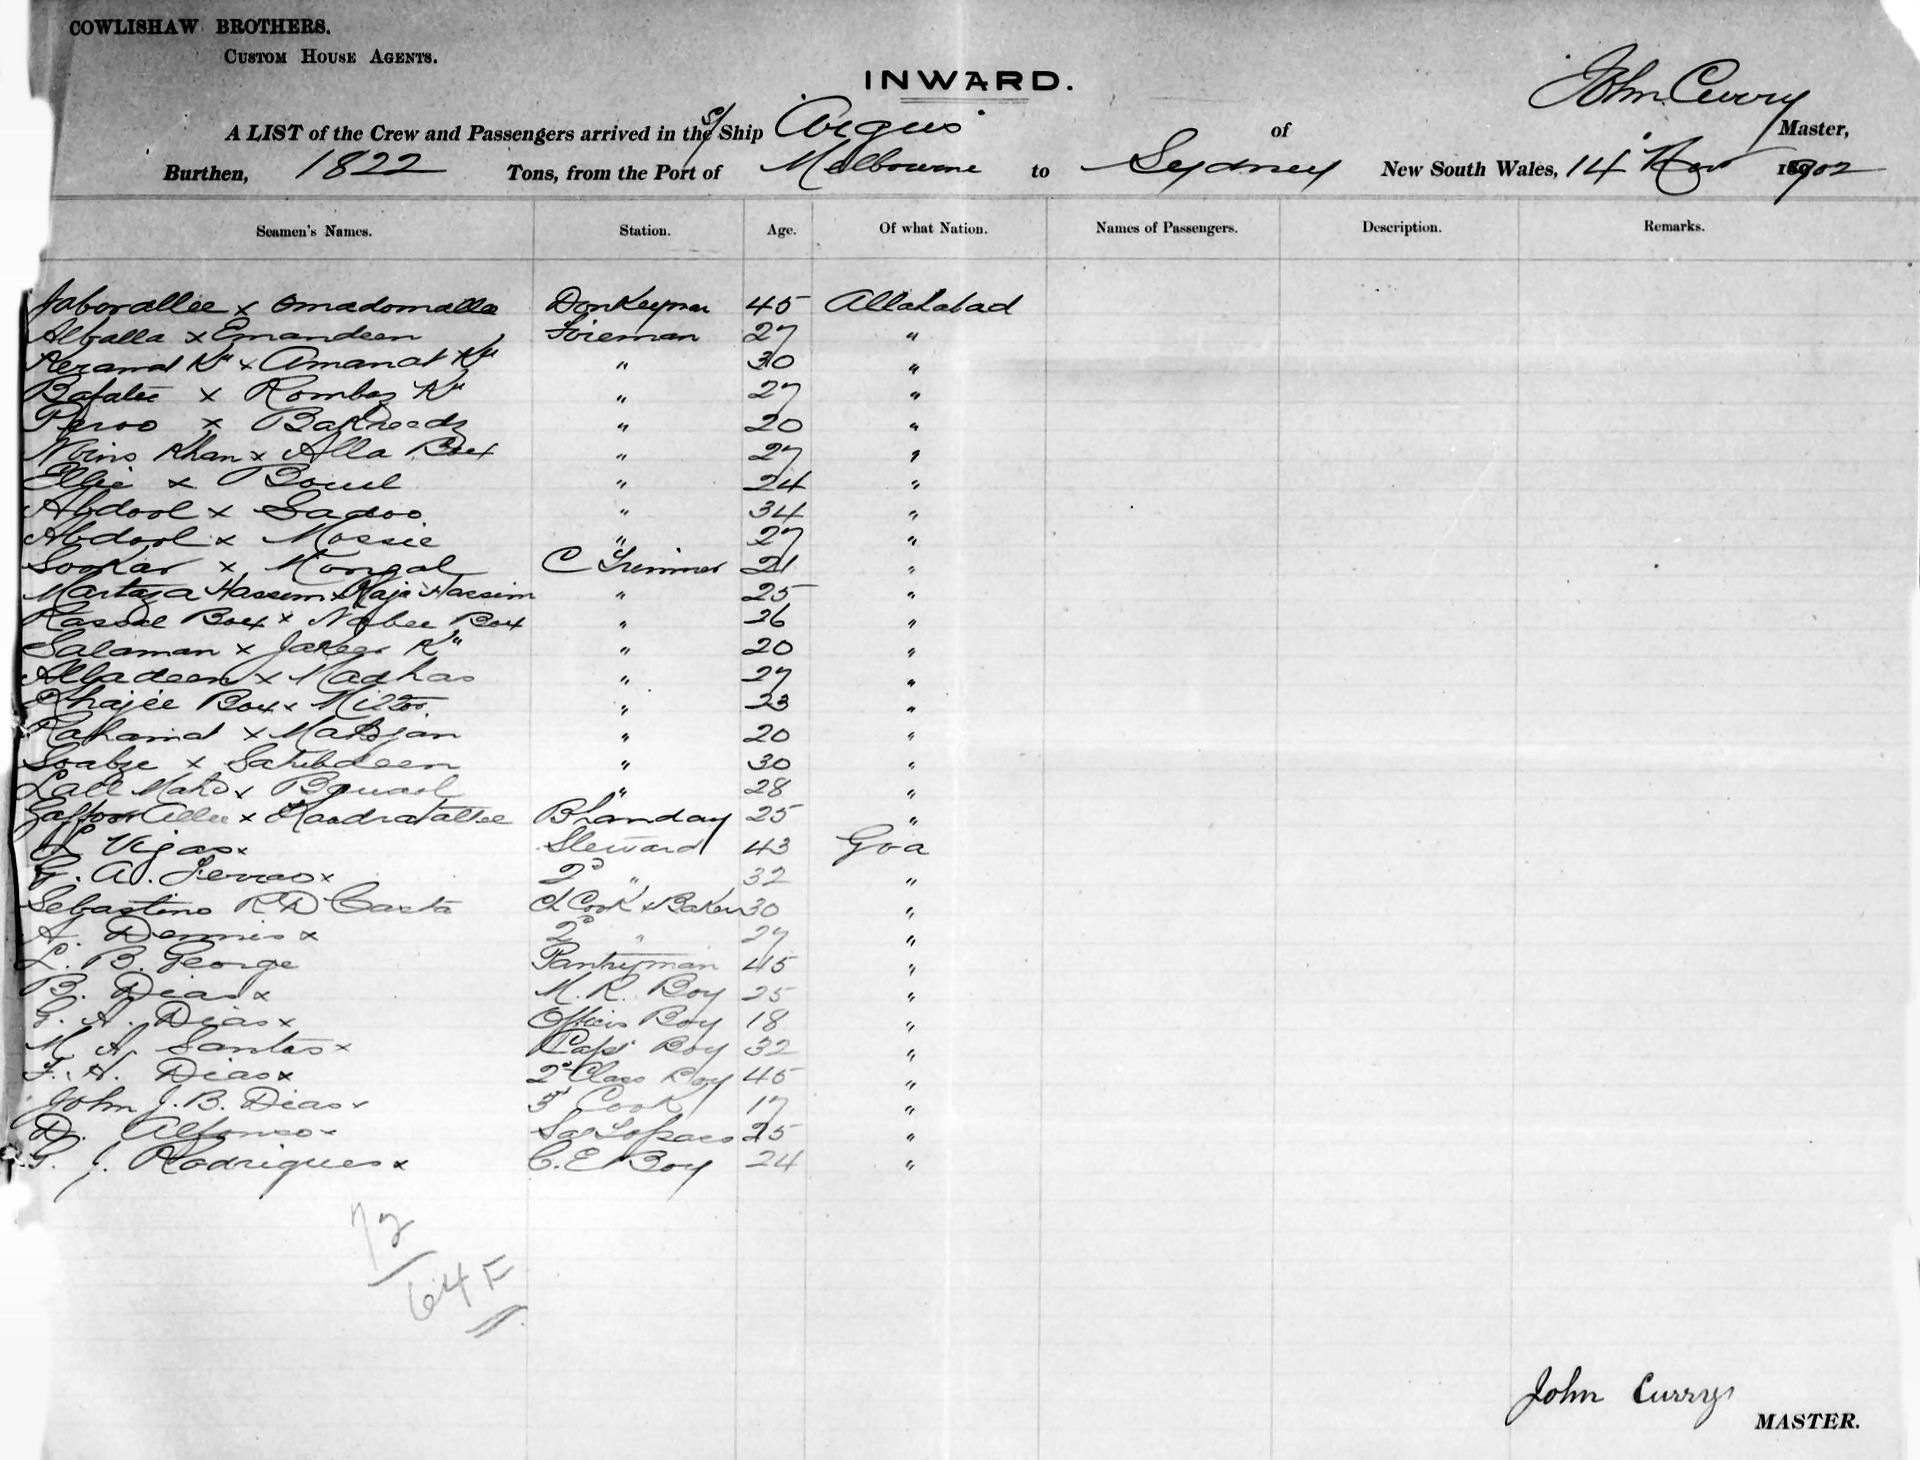 COWLISHAW BROTHERS.
CUSTOM HOUSE AGENTS.
INWARD.
John Curry
A LIST of the Crew and Passengers arrived in the S/ Ship "Argus" of Master,
Burthen, 1822 Tons, from the Port of Melbourne to Sydney New South Wales, 14" Nov 1902
Seamen's Names. Station. Age. Of what Nation. Names of Passengers. Description. Remarks.
Jaborallee x Omadomalla Donkeyman 45 Allahabad
Alballa x Emandeen Fireman 27 "
Keramat Kn x Amanat Kn " 30 "
Bafatee x Rombaz Kn " 27 "
Peroo x " 20 "
Khan x Alla Box " 27 "
Ellie x " 24 "
Abdool x Sadoo " 34 "
Abdool x Mossie " 27 "
Sookar x Mongal C Trimmer 21 "
Martaza Hassim x Haji Hassim " 25 "
Box x Nobee Box " 26 "
Salaman x K" " 20 "
Albadeen x Madhas " 27 "
Khajee Box x " 23 "
Rahamat x Madojan " 20 "
x Sahibdeen " 30 "
Lall Mahd x " 28 "
Gaffoor Allee x Bhanday 25 "
L Vigas x Steward 43 Goa
G. A. Ferrao x 2d " 32 "
Sebastino R D Casta Ch Cook & Baker 30 "
A. Dennis x 2d " 27 "
L. B. George Pantryman 45 "
B. Dias x M. R. Boy 25 "
G. A. Dias x Officers Boy 18 "
M. A. Santos x Capt Boy 32 "
F. A. Dias x 2d Class Boy 45 "
John J. B. Dias x 3d Cook 17 "
D. Alfonso x 25 "
G. J. Rodrigues x C. E Boy 24 "
72
64 F
John Curry
MASTER.